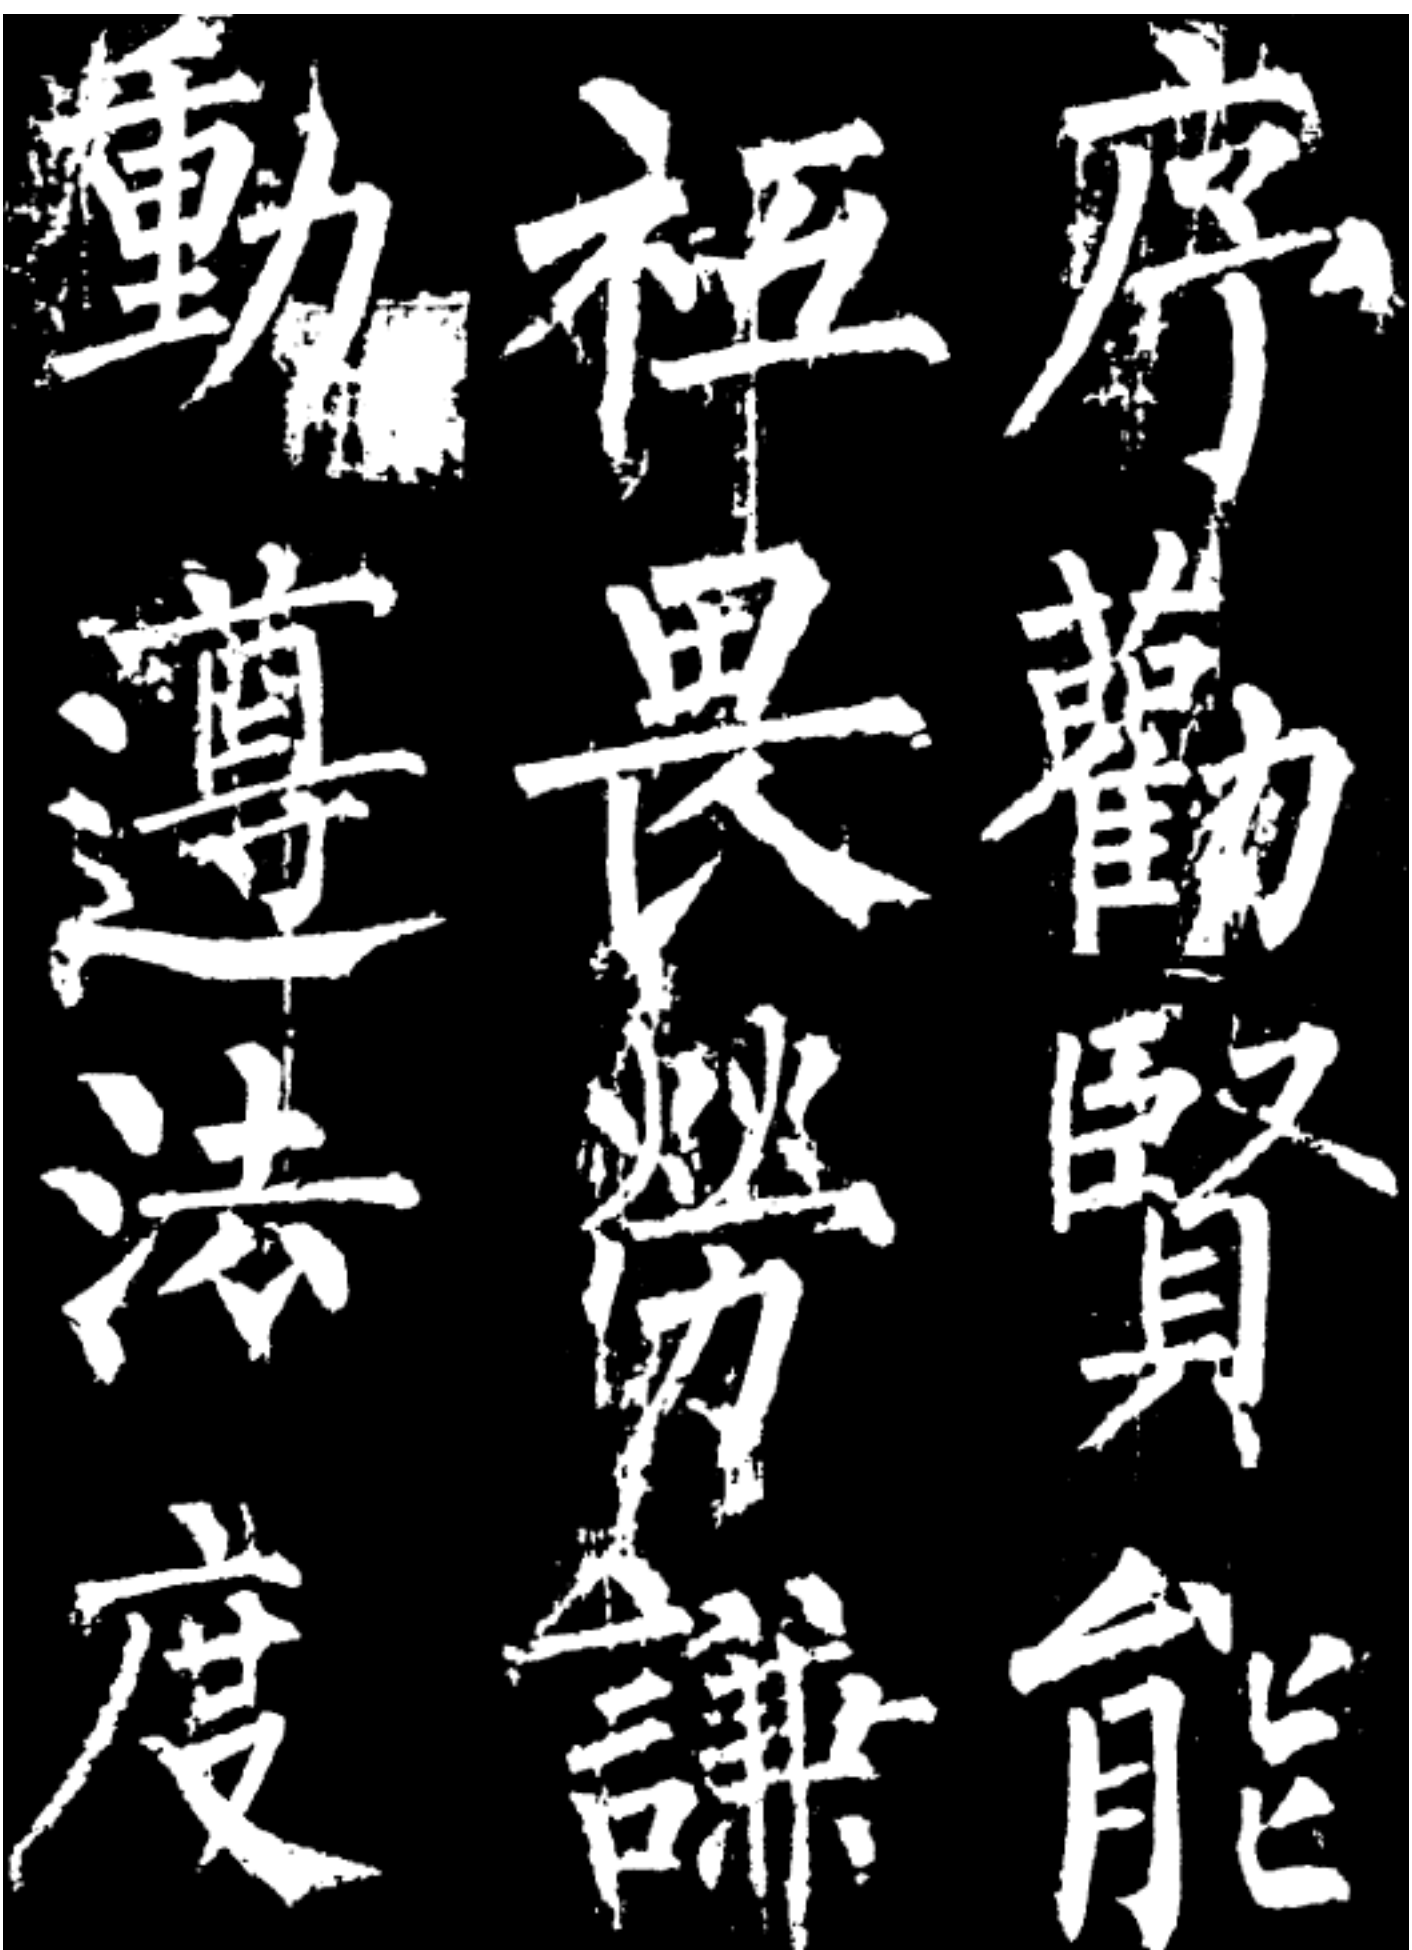 序勸賢能
祗畏勞謙
動遵法度